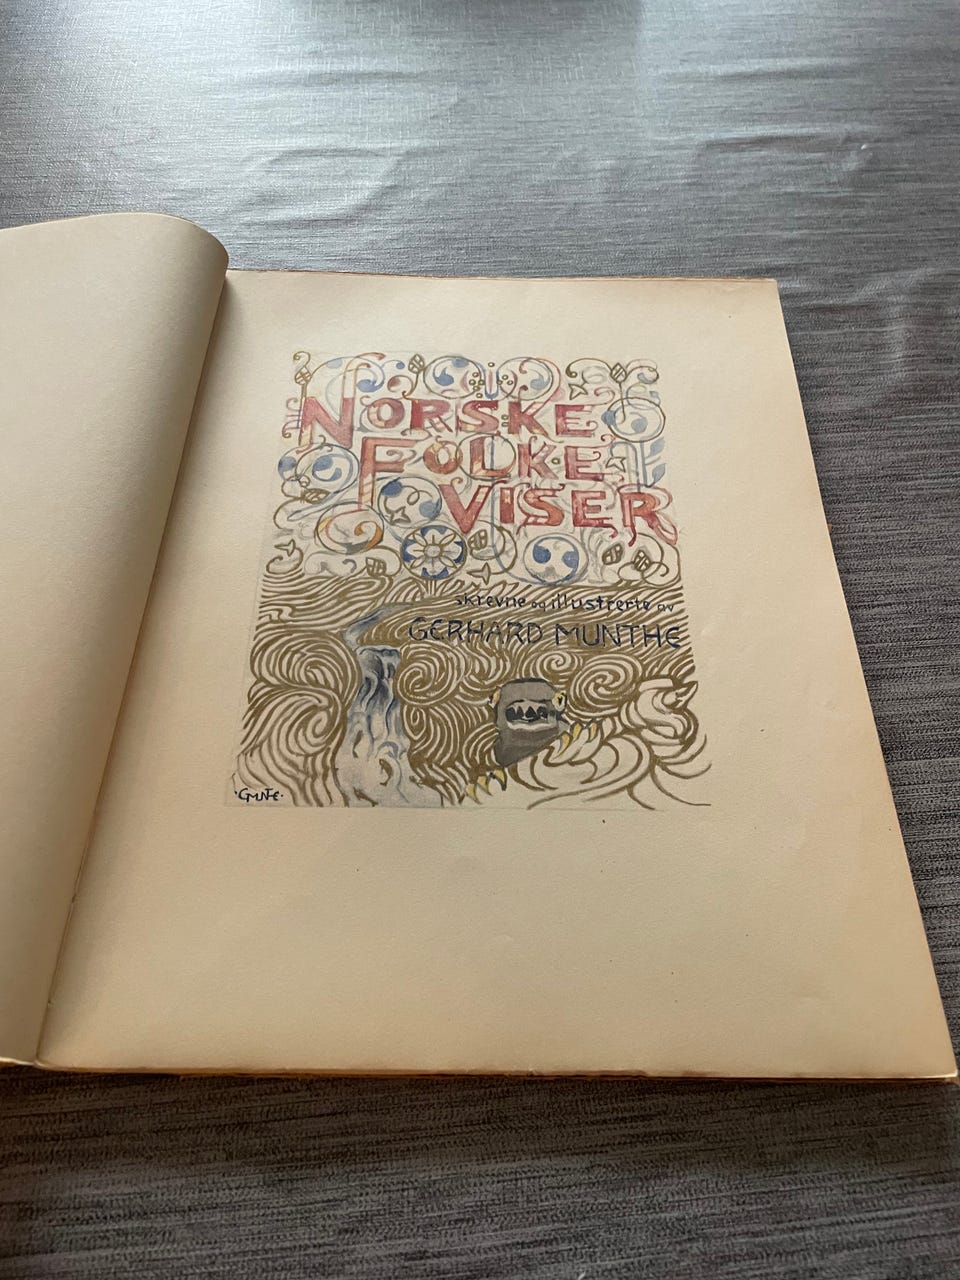 NORSKE
FOLKE
VISER
skrevne og illustrerte av
GERHARD MUNTHE